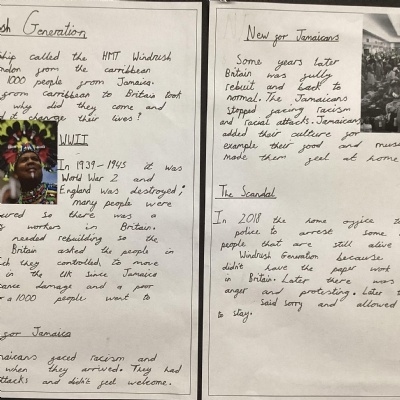 sh Generation
ship called the HMT Windrush
ndon from the carribean
1000 people from Jamaica.
from carribean to Britain took
why did they come and
it change their lives?
WWII
In 1939-1945 it was
World War 2 and
England was destroyed;
many people were
ured so there was a
workers in Britain.
needed rebuilding so the
Britain asked the people in
ch they controlled, to move
in the UK since Jamaica
cane damage and a poor
a 1000 people want to
for Jamaica
maicans faced racism and
when they arrived. They had
attacks and didn't feel welcome.
New for Jamaicans
Some years later
Britain was fully
rebuit and back to
normal. The Jamaicans
stopped facing racism
and racial attacks. Jamaicans
added their culture for
example their food and music
made them feel at home
The Scandal
In 2018 the home office
police to arrest some
people that are still alive
Windrush Generation because
didn't have the paper work
in Britain. Later there was
anger and protesting. Later
said sorry and allowed
to stay.